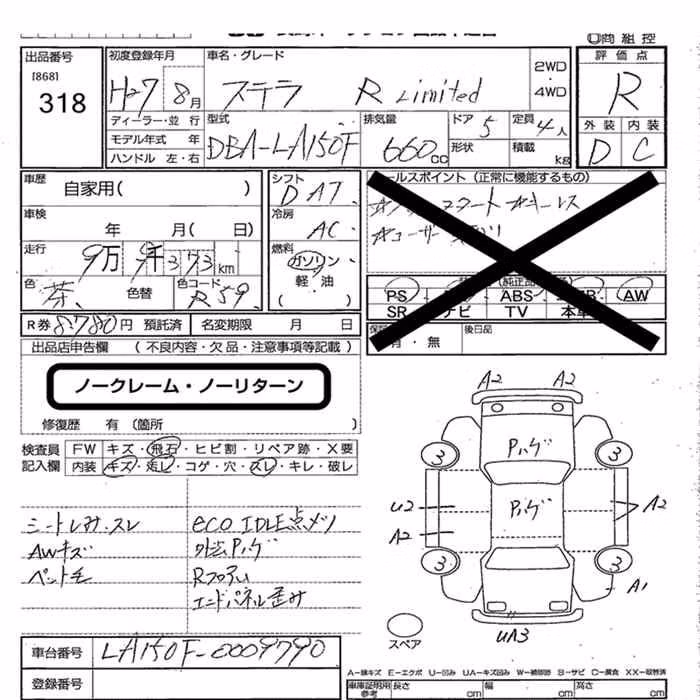 商 組 控
出品番号
[868]
318
初度登録年月
H27 8月
ディーラー・並 行
モデル年式 年
ハンドル 左・右
車名・グレード
ステラ R Limited
2WD
4WD
型式
DBA-LA150F
排気量
660cc
ドア 5
形状
定員 4人
積載 kg
評 価 点
R
外 装 内 装
D C
車歴
自家用( )
車検
年 月( 日)
走行
9万 9千373km
色
茶
色替
色コード
R59
シフト
DAT
冷房
AC
燃料
ガソリン
軽・油
( )
R券 8780円 預託済 名変期限 月 日
ールスポイント (正常に機能するもの)
スタート キーレス
PS ABS AW
SR ナビ TV
有・無
後日品
出品店申告欄 (不良内容・欠品・注意事項等記載)
ノークレーム・ノーリターン
修復歴 有 (箇所 )
検査員
記入欄
FW キズ・飛石・ヒビ割・リペア跡・X要
内装 キズ・汚レ・コゲ・穴・スレ・キレ・破レ
シートしみ・スレ
AWキズ
ペット毛
eco IDLE点メツ
Pハゲ
エンドパネル歪み
A2 A2
Pハゲ
3 3
Pハゲ
U2
A2
A2
3 3
A1
UA3
スペア
車台番号
LA150F-0009790
登録番号
A-線キズ E-エクボ U-凹み UA-キズ凹み W-補修跡 S-サビ C-腐食 XX-取替済
車庫証明用
参考
長さ cm 幅 cm 高さ cm